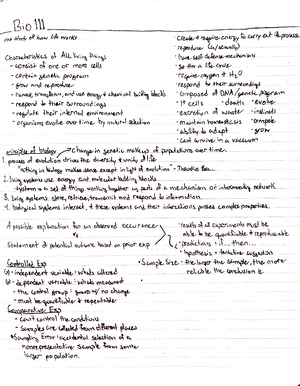 Bio 111
Characteristics of All living things
- consist of one or more cells
- contain genetic program
- grow and reproduce
- harvest, transform, and use energy & chemical building blocks
- respond to their surroundings
- regulate their internal environment
- organisms evolve over time by natural selection
* create & require energy to carry out life process
* reproduce (a/sexually)
* have self-defense mechanisms
* go thru a life cycle
* require oxygen & H2O
* respond to their surroundings
* composed of DNA/genetic program
* 1+ cells * death * evolve
* excretion of waste
* maintain homeostasis
* ability to adapt * grow
* can't survive in a vacuum
principles of biology → Change in genetic makeup of populations over time.
1. process of evolution drives the diversity & unity of life
"nothing in biology makes sense except in light of evolution"
2. living systems use energy and molecular building blocks
- system = a set of things working together as parts of a mechanism or interconnecting network
3. living systems store, retrieve, transmit and respond to information.
4. biological systems interact, & these systems and their interactions possess complex properties.
A possible explanation for an observed occurrence
Statement of potential outcome based on prior exp
* results of all experiments must be able to be quantifiable & reproduceable
predictions: if... then...
hypothesis = tentative suggestion
Controlled Exp
(x) - independent variable: what's altered
(y) - dependent variable: what's measured
- the control group: given w/ no change
- must be quantifiable & repeatable
* Sample Size - the larger the sample, the more reliable the conclusion is.
Comparative Exp
- Can't control the conditions
- Samples are collected from different places
* Sampling Error: accidental selection of a nonrepresentative sample from some larger population.